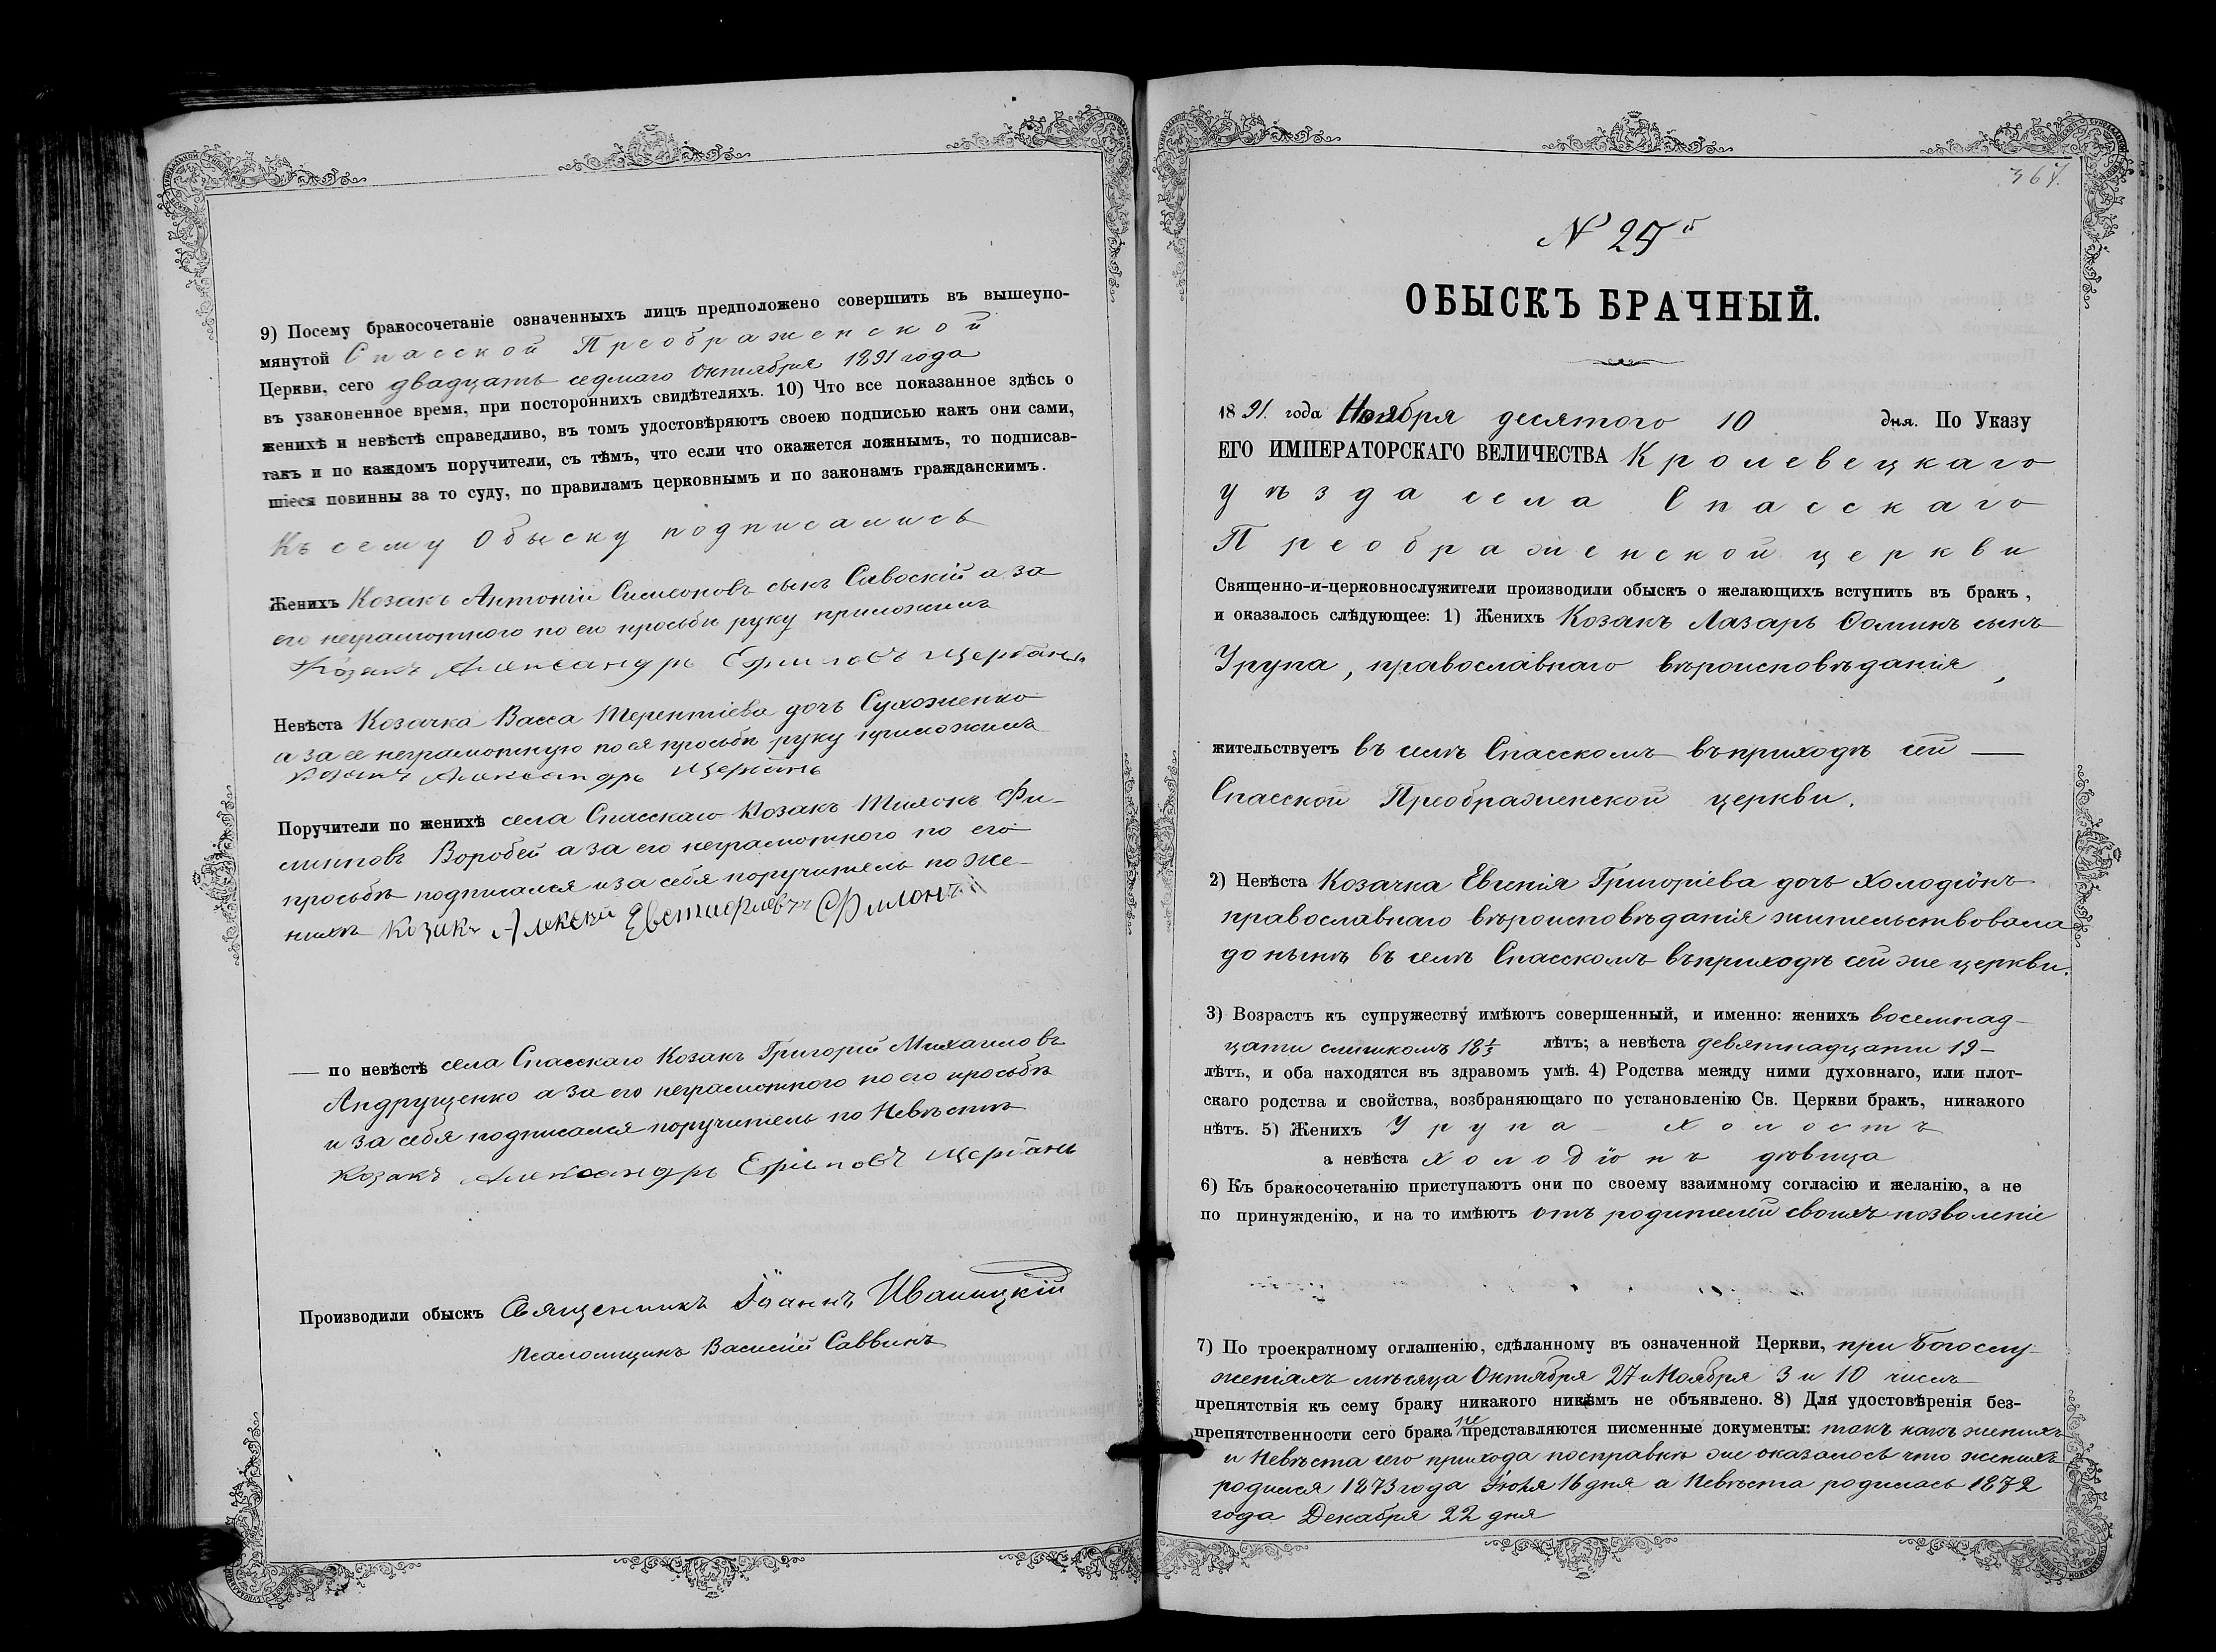 9) Посему бракосочетаніе означенныхъ лицъ предположено совершить въ вышеупо-
мянутой Спасской Преображенской
Церкви, сего двадцать седмаго Октября 1891 года
въ узаконенное время, при постороннихъ свидѣтеляхъ. 10) Что все показанное здѣсь о
женихѣ и невѣстѣ справедливо, въ томъ удостовѣряютъ своею подписью какъ они сами,
такъ и по каждомъ поручители, съ тѣмъ, что если что окажется ложнымъ, то подписав-
шіеся повинны за то суду, по правиламъ церковнымъ и по законамъ гражданскимъ.
Къ сему Обыску подписались
Женихъ Козакъ Антоній Симеоновъ сынъ Савоскій а за
его неграмотного по его просьбѣ руку приложилъ
Козакъ Александръ Ефимовъ Щербань
Невѣста Козачка Васса Терентіева дочь Сухоженко
а за ее неграмотную по ея просьбѣ руку приложилъ
Козакъ Александръ Щербань
Поручители по женихѣ села Спасскаго Козакъ Тихонъ Фи-
липповъ Воробей а за его неграмотного по его
просьбѣ подписался и за себя поручитель по же-
нихѣ Козакъ Алексѣй Евстафіевъ Филонъ
— по невѣстѣ села Спасскаго Козакъ Григорій Михаиловъ
Андрущенко а за его неграмотного по его просьбѣ
и за себя подписался поручитель по Невѣстѣ
Козакъ Александръ Ефимовъ Щербань
Производили обыскъ Священникъ Іоаннъ Иваницкій
Псаломщикъ Василій Саввинъ
367.
N 25й
ОБЫСКЪ БРАЧНЫЙ.
1891. года Ноября десятого 10 дня. По Указу
ЕГО ИМПЕРАТОРСКАГО ВЕЛИЧЕСТВА Кролевецкаго
уѣзда села Спасскаго
Преображенской церкви
Священно-и-церковнослужители производили обыскъ о желающихъ вступить въ бракъ,
и оказалось слѣдующее: 1) Женихъ Козакъ Лазарь Ѳоминъ сынъ
Урупа, православнаго вѣроисповѣданія,
жительствуетъ въ селѣ Спасскомъ въ приходѣ сей —
Спасской Преображенской церкви.
2) Невѣста Козачка Евгенія Григоріева дочь Холодіонъ
православнаго вѣроисповѣданія жительствовала
до нынѣ въ селѣ Спасскомъ въ приходѣ сей же церкви.
3) Возрастъ къ супружеству имѣютъ совершенный, и именно: женихъ восемнад-
цати слишкомъ 18 1/3 лѣтъ; а невѣста девятнадцати 19 —
лѣтъ, и оба находятся въ здравомъ умѣ. 4) Родства между ними духовнаго, или плот-
скаго родства и свойства, возбраняющаго по установленію Св. Церкви бракъ, никакого
нѣтъ. 5) Женихъ Урупа — холостъ
а невѣста Холодіонъ дѣвица
6) Къ бракосочетанію приступаютъ они по своему взаимному согласію и желанію, а не
по принужденію, и на то имѣютъ отъ родителей своихъ позволеніе
7) По троекратному оглашенію, сдѣланному въ означенной Церкви, при Богослу-
женіяхъ мѣсяца Октября 27 и Ноября 3 и 10 числъ
препятствія къ сему браку никакого никѣмъ не объявлено. 8) Для удостовѣренія без-
препятственности сего брака не представляются писменные документы: такъ какъ женихъ
и Невѣста сего прихода по справкѣ же оказалось что женихъ
родился 1873 года Іюля 16 дня а Невѣста родилась 1872
года Декабря 22 дня